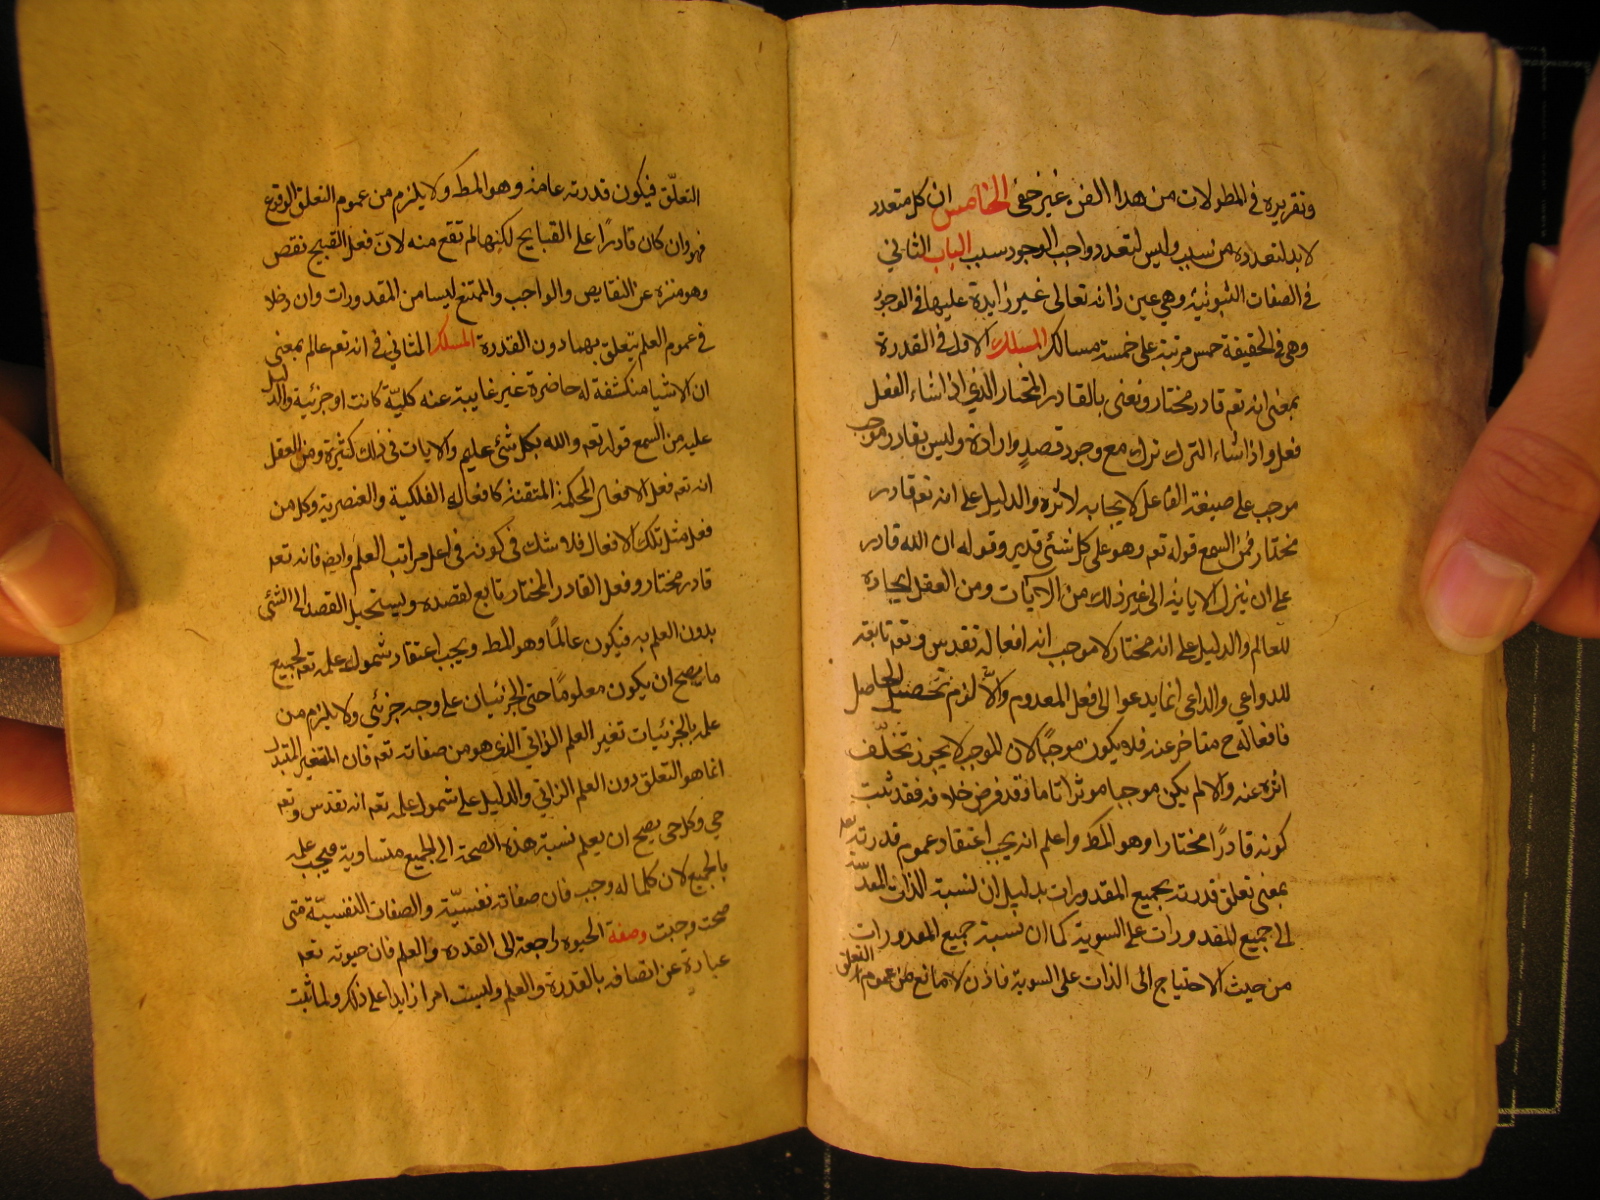 وتقريره في المطولات من هذا الفن غير خفي الخامس ان كل متعدد
لا بد لتعدده من سبب وليس لتعدد واجب الوجود سبب الباب الثاني
في الصفات الثبوتية وهي عين ذاته تعالى غير زايدة عليها في الوجود
وهي في الحقيقة خمس مرتبة على خمسة مسالك المسلك الاول في القدرة
بمعنى انه تعه قادر مختار ونعني بالقادر المختار الذي اذا شاء الفعل
فعل واذا شاء الترك ترك مع وجود قصد وارادة وليس بقادر موجب
موجب على صيغة الفاعل لايجابه لاثره والدليل على انه تعه قادر
مختار فمن السمع قوله تعه وهو على كل شئ قدير وقوله ان الله قادر
على ان ينزل الاية الى غير ذلك من الايات ومن العقل ايجاده
للعالم والدليل على انه مختار لا موجب انه افعاله تقدس وتعه تابعة
للدواعي والداعي انما يدعوا الى فعل المعدوم والا لزم تحصيل الحاصل
فافعاله ح متاخر عنه فلا يكون موجبًا لان الموجب لا يجوز تخلف
اثره عنه والا لم يكن موجبا موثرا تاما وقد فرض خلافه فقد ثبت
كونه قادرًا مختارا وهو المط واعلم انه يجب اعتقاد عموم قدرته تعه
بمعنى تعلق قدرته بجميع المقدورات بدليل ان نسبة الذات المقدسة
الى جميع المقدورات على السوية كما ان نسبة جميع المقدورات
من حيث الاحتياج الى الذات على السوية فاذن لا مانع من عموم التعلق
التعلّق فيكون قدرته عامة وهو المط ولا يلزم من عموم التعلق الوقوع
فهو وان كان قادرًا على القبايح لكنها لم تقع منه لان فعل القبيح نقص
وهو منزه عن النقايص والواجب والممتنع ليسا من المقدورات وان دخلا
في عموم العلم يتعلق بهما دون القدرة المسلك الثاني في انه تعه عالم بمعنى
ان الاشيا منكشفة له حاضرة غير غايبة عنه كليّة كانت او جزئية والدليل
عليه من السمع قوله تعه والله بكل شئ عليم والايات في ذلك كثيرة ومن العقل
انه تعه فعل الافعال المحكمة المتقنة كافعاله الفلكية والعنصرية وكل من
فعل مثل تلك الافعال فلا شك في كونه في اعلى مراتب العلم وايضه فانه تعه
قادر مختار وفعل القادر المختار تابع لقصده ويستحيل القصد الى الشئ
بدون العلم به فيكون عالمًا وهو المط ويجب اعتقاد شمول علمه تعه لجميع
ما يصح ان يكون معلومًا حتى الجزئيات على وجه جزئي ولا يلزم من
علمه بالجزئيات تغير العلم الذاتي الذي هو من صفاته تعه فان المتغير المتبدل
انما هو التعلق دون العلم الذاتي والدليل على شمول علمه تعه انه تقدس وتعه
حي وكل حي يصح ان يعلم نسبة هذه الصحة الى الجميع متساوية فيجب علمه
بالجميع لان كلما له وجب فان صفاته نفسيّة والصفات النفسيّة متى
صحت وجبت وصفة الحيوه راجعة الى القدرة والعلم فان حيوته تعه
عبارة عن اتصافه بالقدرة والعلم وليست امرا زايدا على ذلك ولما ثبت